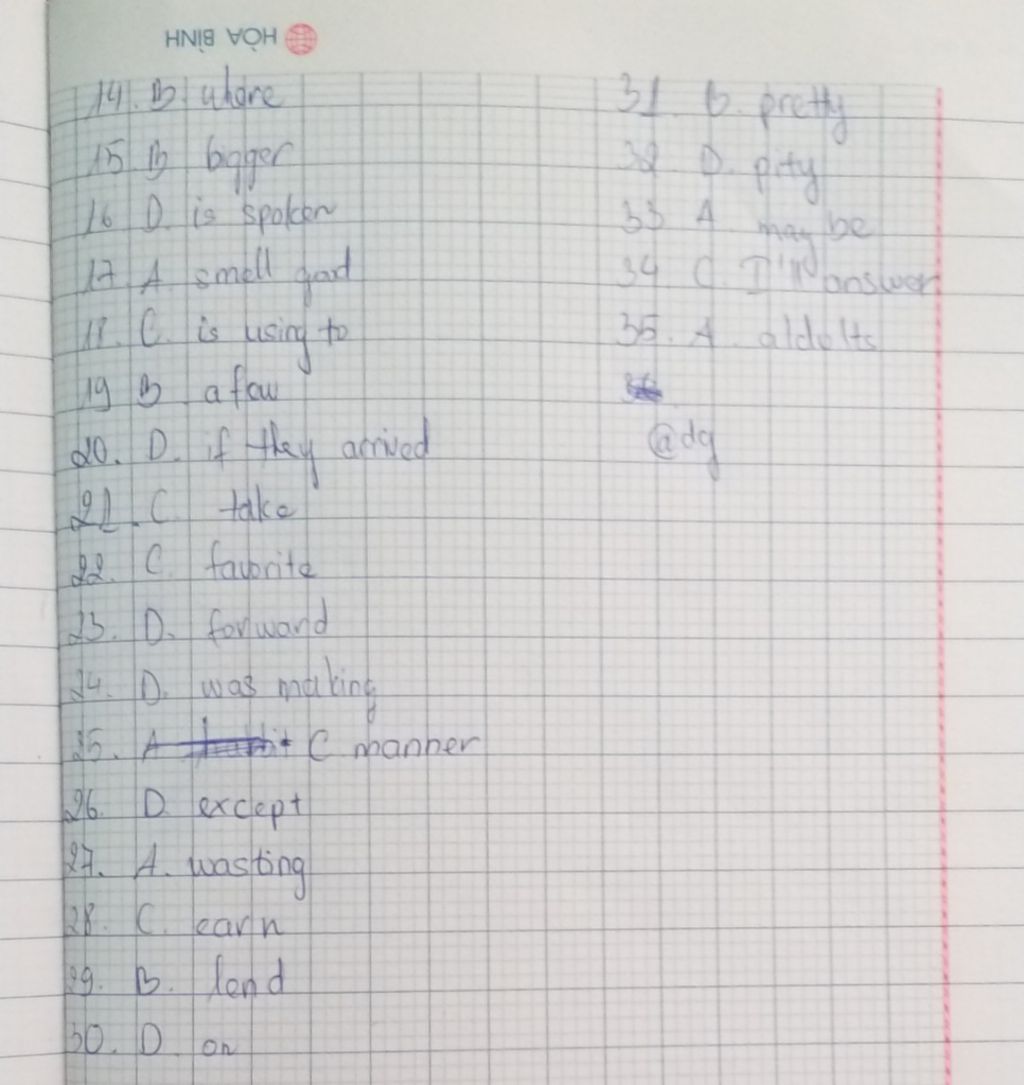 HÒA BÌNH
14. B. where
15 B bigger
16 D. is spoken
17. A smell good
18. C. is using to
19 B a few
20. D. if they arrived
21. C. take
22. C. favorite
23. D. forward
24. D. was making
25. C manner
26. D except
27. A. wasting
28. C. earn
29. B. lend
30. D. on
31 B. pretty
32 D. pity
33 A may be
34 C. I'll answer
35. A. aldolts
@dg